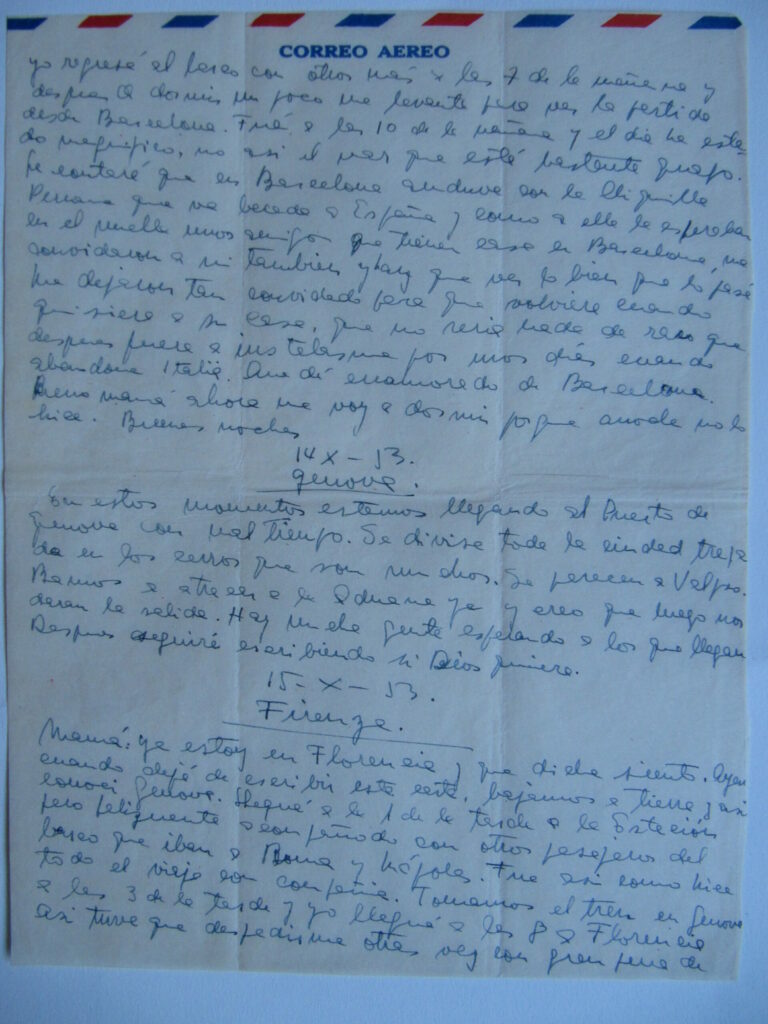 CORREO AEREO
yo regresé al barco con otros más a las 7 de la mañana y
despues de dormir un poco me levante para ver la partida
desde Barcelona. Fué a las 10 de la mañana y el dia ha esta-
do magnifico, no asi el mar que está bastante guapo.
Te contaré que en Barcelona anduve con la chiquilla
Peruana que va becada a España y como a ella la esperaban
en el muelle unos amigos que tienen casa en Barcelona, me
convidaron a mi tambien y hay que ver lo bien que lo pasé
Me dejaron tan convidado para que volviera cuando
quisiera a su casa, que no seria nada de raro que
despues fuera a por unos dias cuando
abandone Italia. Quedé enamorado de Barcelona.
Bueno mamá ahora me voy a dormir porque anoche no lo
hice. Buenas noches
14 X - 53.
Genova.
En estos momentos estamos llegando al Puerto de
Genova con mal tiempo. Se divisa toda la ciudad trepa
da en los cerros que son muchos. Se parece a Valpo.
Bamos a atracar a la Aduana ya y creo que luego nos
daran la salida. Hay mucha gente esperando a los que llegan
Despues seguiré escribiendo si Dios quiere.
15 - X - 53.
Firenze.
Mamá: ya estoy en Florencia y que dicha siento. Ayer
cuando dejé de escribir esta carta, bajamos a tierra y asi
conoci Genova. Llegué a la 1 de la tarde a la Estación
pero felizmente acompañado con otros pasajeros del
barco que iban a Roma y Nápoles. Fue asi como hice
todo el viaje con compañia. Tomamos el tren en Genova
a las 3 de la tarde y yo llegué a las 8 a Florencia
asi tuve que despedirme otra vez con gran pena de